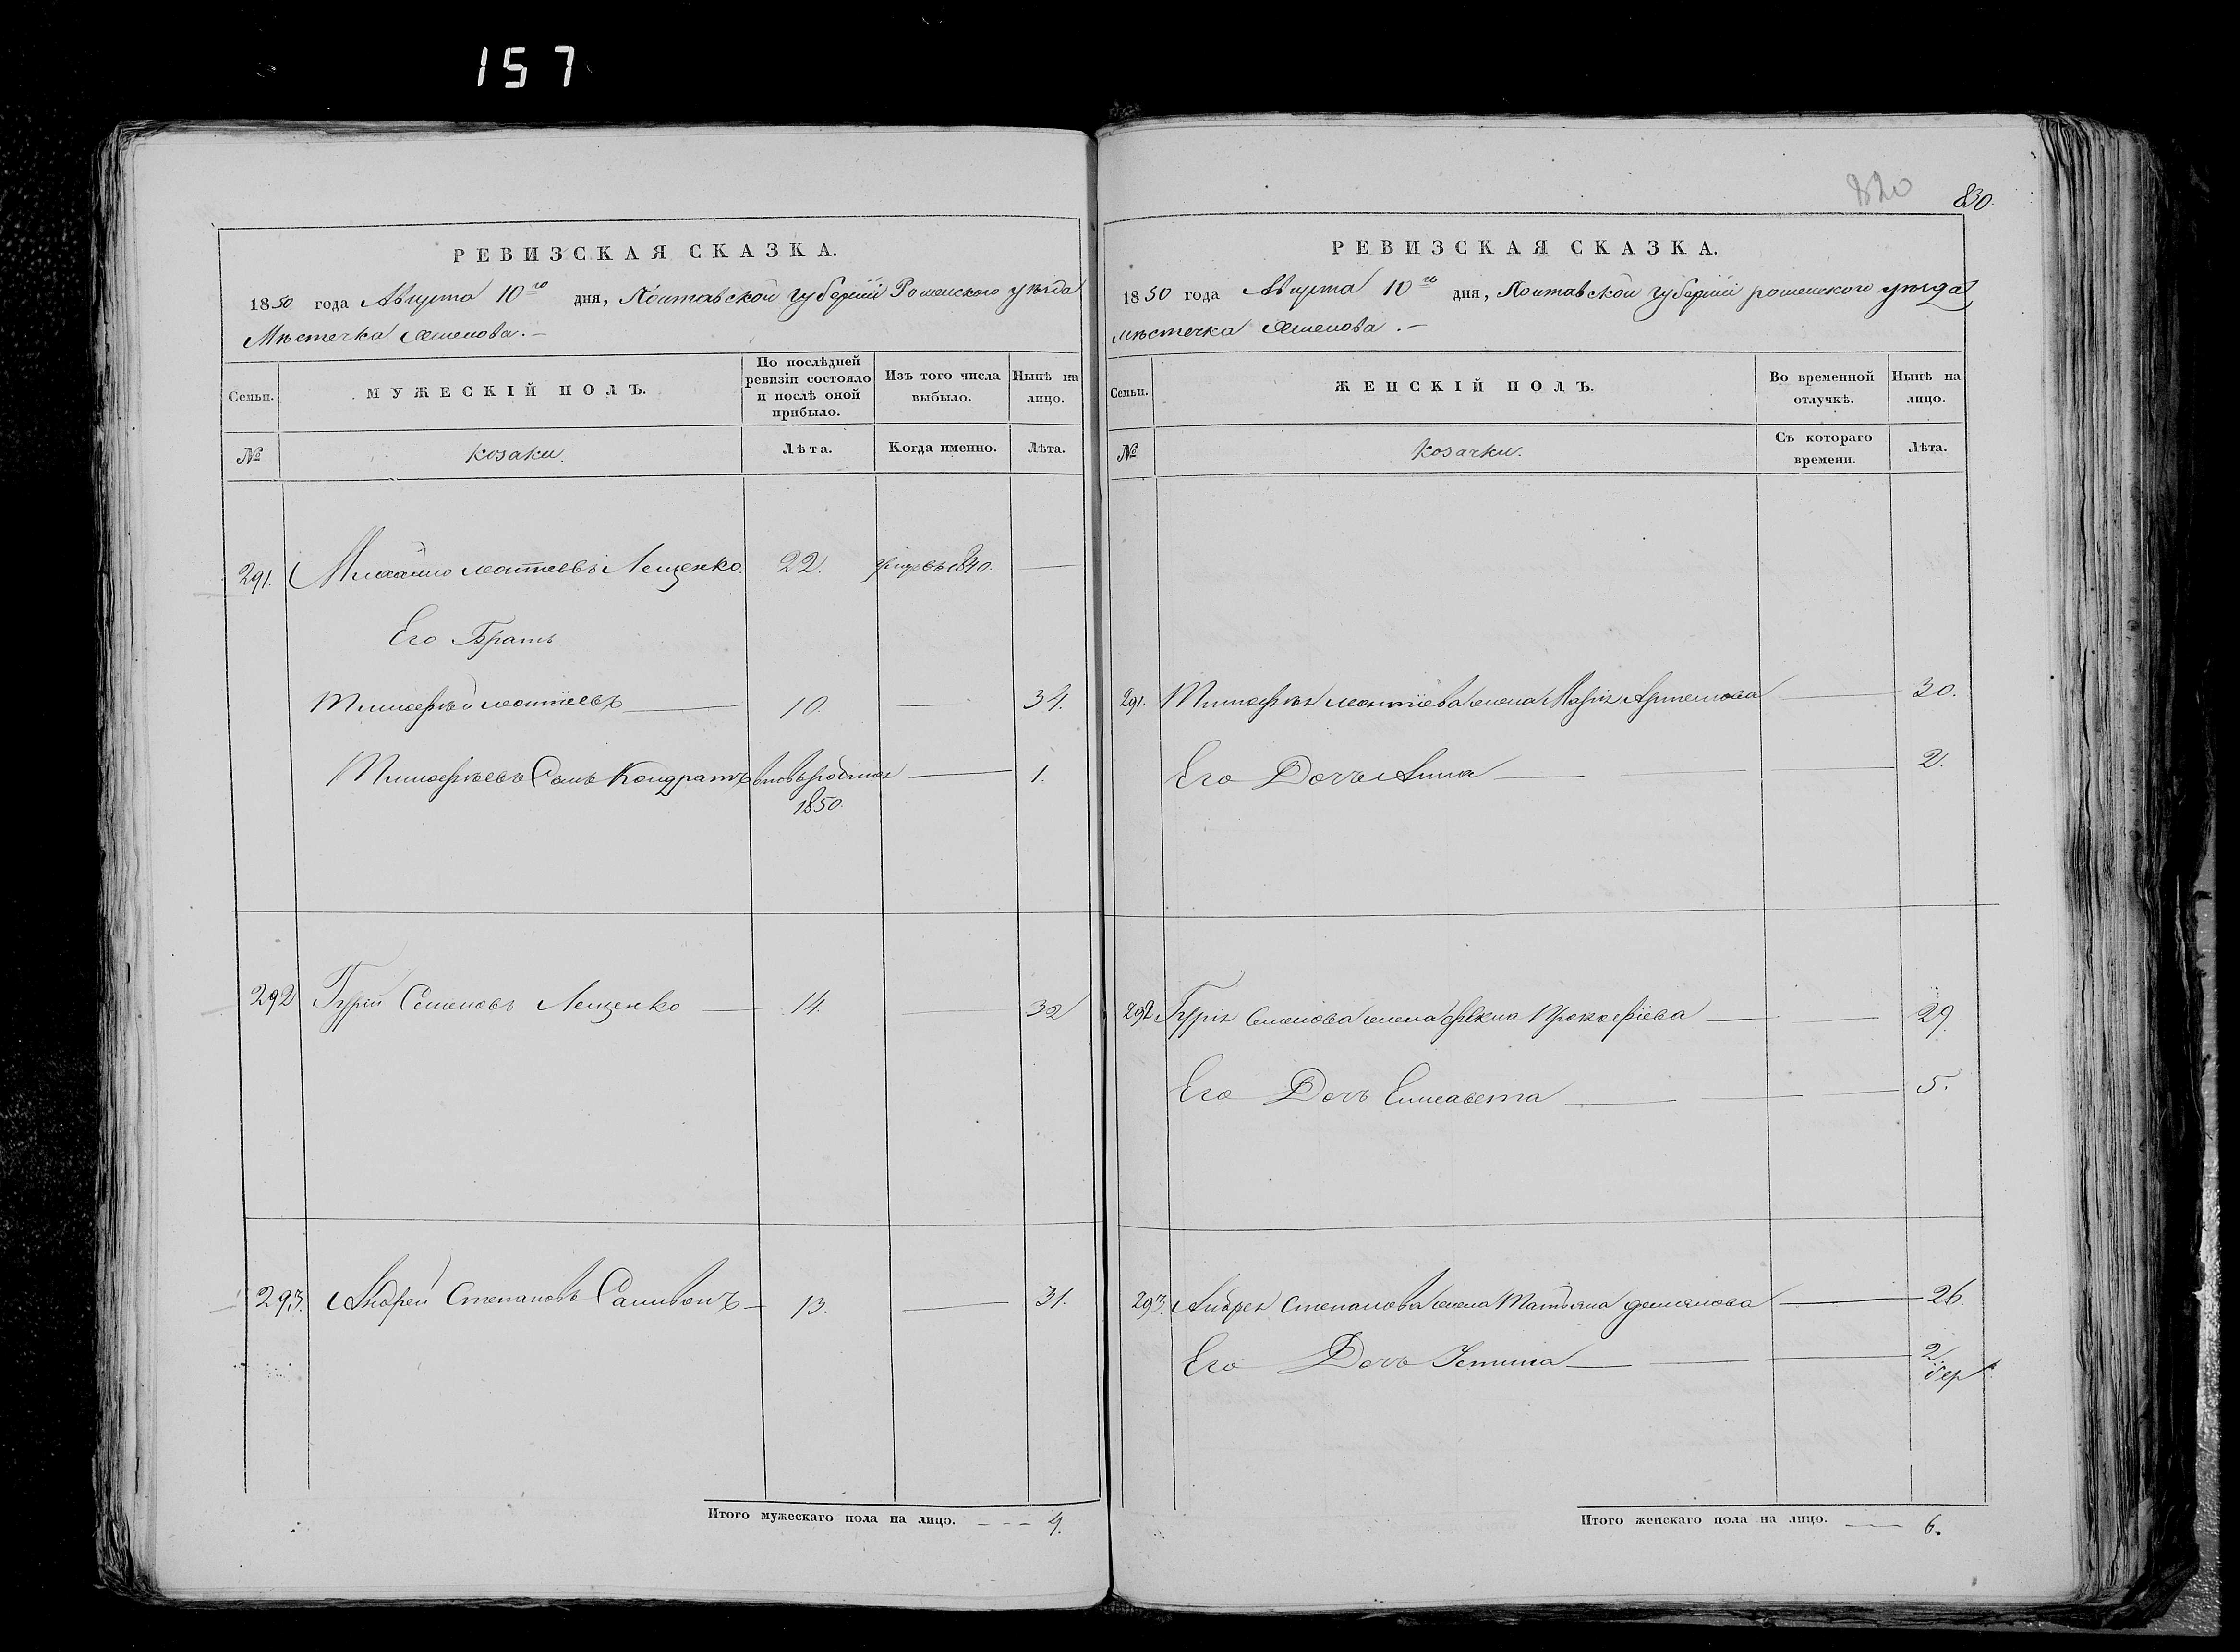 157
РЕВИЗСКАЯ СКАЗКА.
1850 года Августа 10го дня, Полтавской губерніи Роменского уѣзда
Мѣстечка Смелова. –
Семьи. МУЖЕСКІЙ ПОЛЪ. По послѣдней ревизіи состояло и послѣ оной прибыло. Изъ того числа выбыло. Нынѣ на лицо.
№ козаки. Лѣта. Когда именно. Лѣта.
291. Михайло Матвеевъ Лещенко. 22. 1840. —
Его Братъ
Тимофѣй Матвіевъ — 10. — 34.
Тимофѣевъ Сынъ Кондратъ вновьрожденъ — 1.
1850.
292 Гурій Семеновъ Лещенко — 14. — 32
293. Андрей Степановъ Саливонъ — 13. — 31.
Итого мужескаго пола на лицо. - - - 4.
820 830.
РЕВИЗСКАЯ СКАЗКА.
1850 года Августа 10го дня, Полтавской губерніи роменского уѣзда
мѣстечка Смелова. –
Семьи. ЖЕНСКІЙ ПОЛЪ. Во временной отлучкѣ. Нынѣ на лицо.
№ Козачки. Съ котораго времени. Лѣта.
291. Тимофѣя Матвіева жена Марія Артемова — 30.
Его Дочь Анна — 2.
292 Гурія Семенова жена Фекла Прокофіева — 29.
Его Дочъ Елисавета — 5.
293. Андрея Степанова жена Татьяна демянова — 26.
Его Дочь Устина — 2
Итого женскаго пола на лицо. — 6.